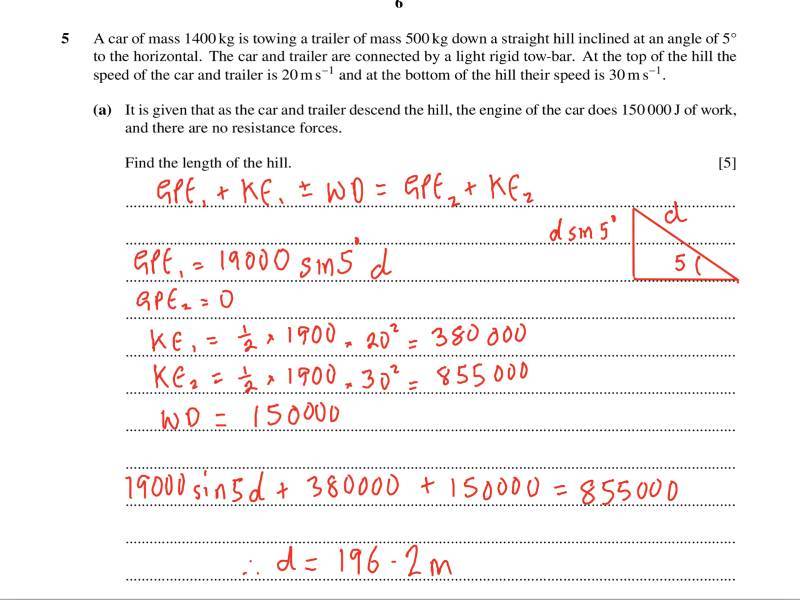 6
5 A car of mass 1400 kg is towing a trailer of mass 500 kg down a straight hill inclined at an angle of 5°
to the horizontal. The car and trailer are connected by a light rigid tow-bar. At the top of the hill the
speed of the car and trailer is 20 m s⁻¹ and at the bottom of the hill their speed is 30 m s⁻¹.
(a) It is given that as the car and trailer descend the hill, the engine of the car does 150 000 J of work,
and there are no resistance forces.
Find the length of the hill. [5]
GPE₁ + KE₁ ± WD = GPE₂ + KE₂
d
d sin 5°
5
GPE₁ = 19000 sin5° d
GPE₂ = 0
KE₁ = ½ × 1900 × 20² = 380 000
KE₂ = ½ × 1900 × 30² = 855 000
WD = 150000
19000 sin5d + 380000 + 150000 = 855000
∴ d = 196.2m